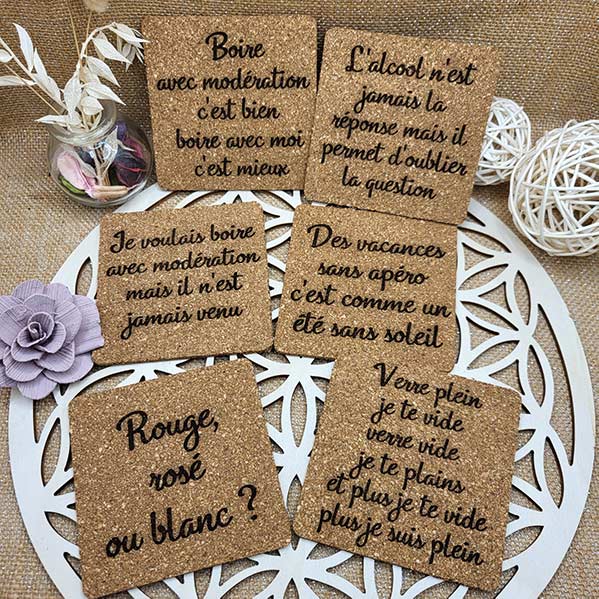 Boire
avec modération
c'est bien
boire avec moi
c'est mieux
L'alcool n'est
jamais la
réponse mais il
permet d'oublier
la question
Je voulais boire
avec modération
mais il n'est
jamais venu
Des vacances
sans apéro
c'est comme un
été sans soleil
Rouge,
rosé
ou blanc ?
Verre plein
je te vide
verre vide
je te plains
et plus je te vide
plus je suis plein